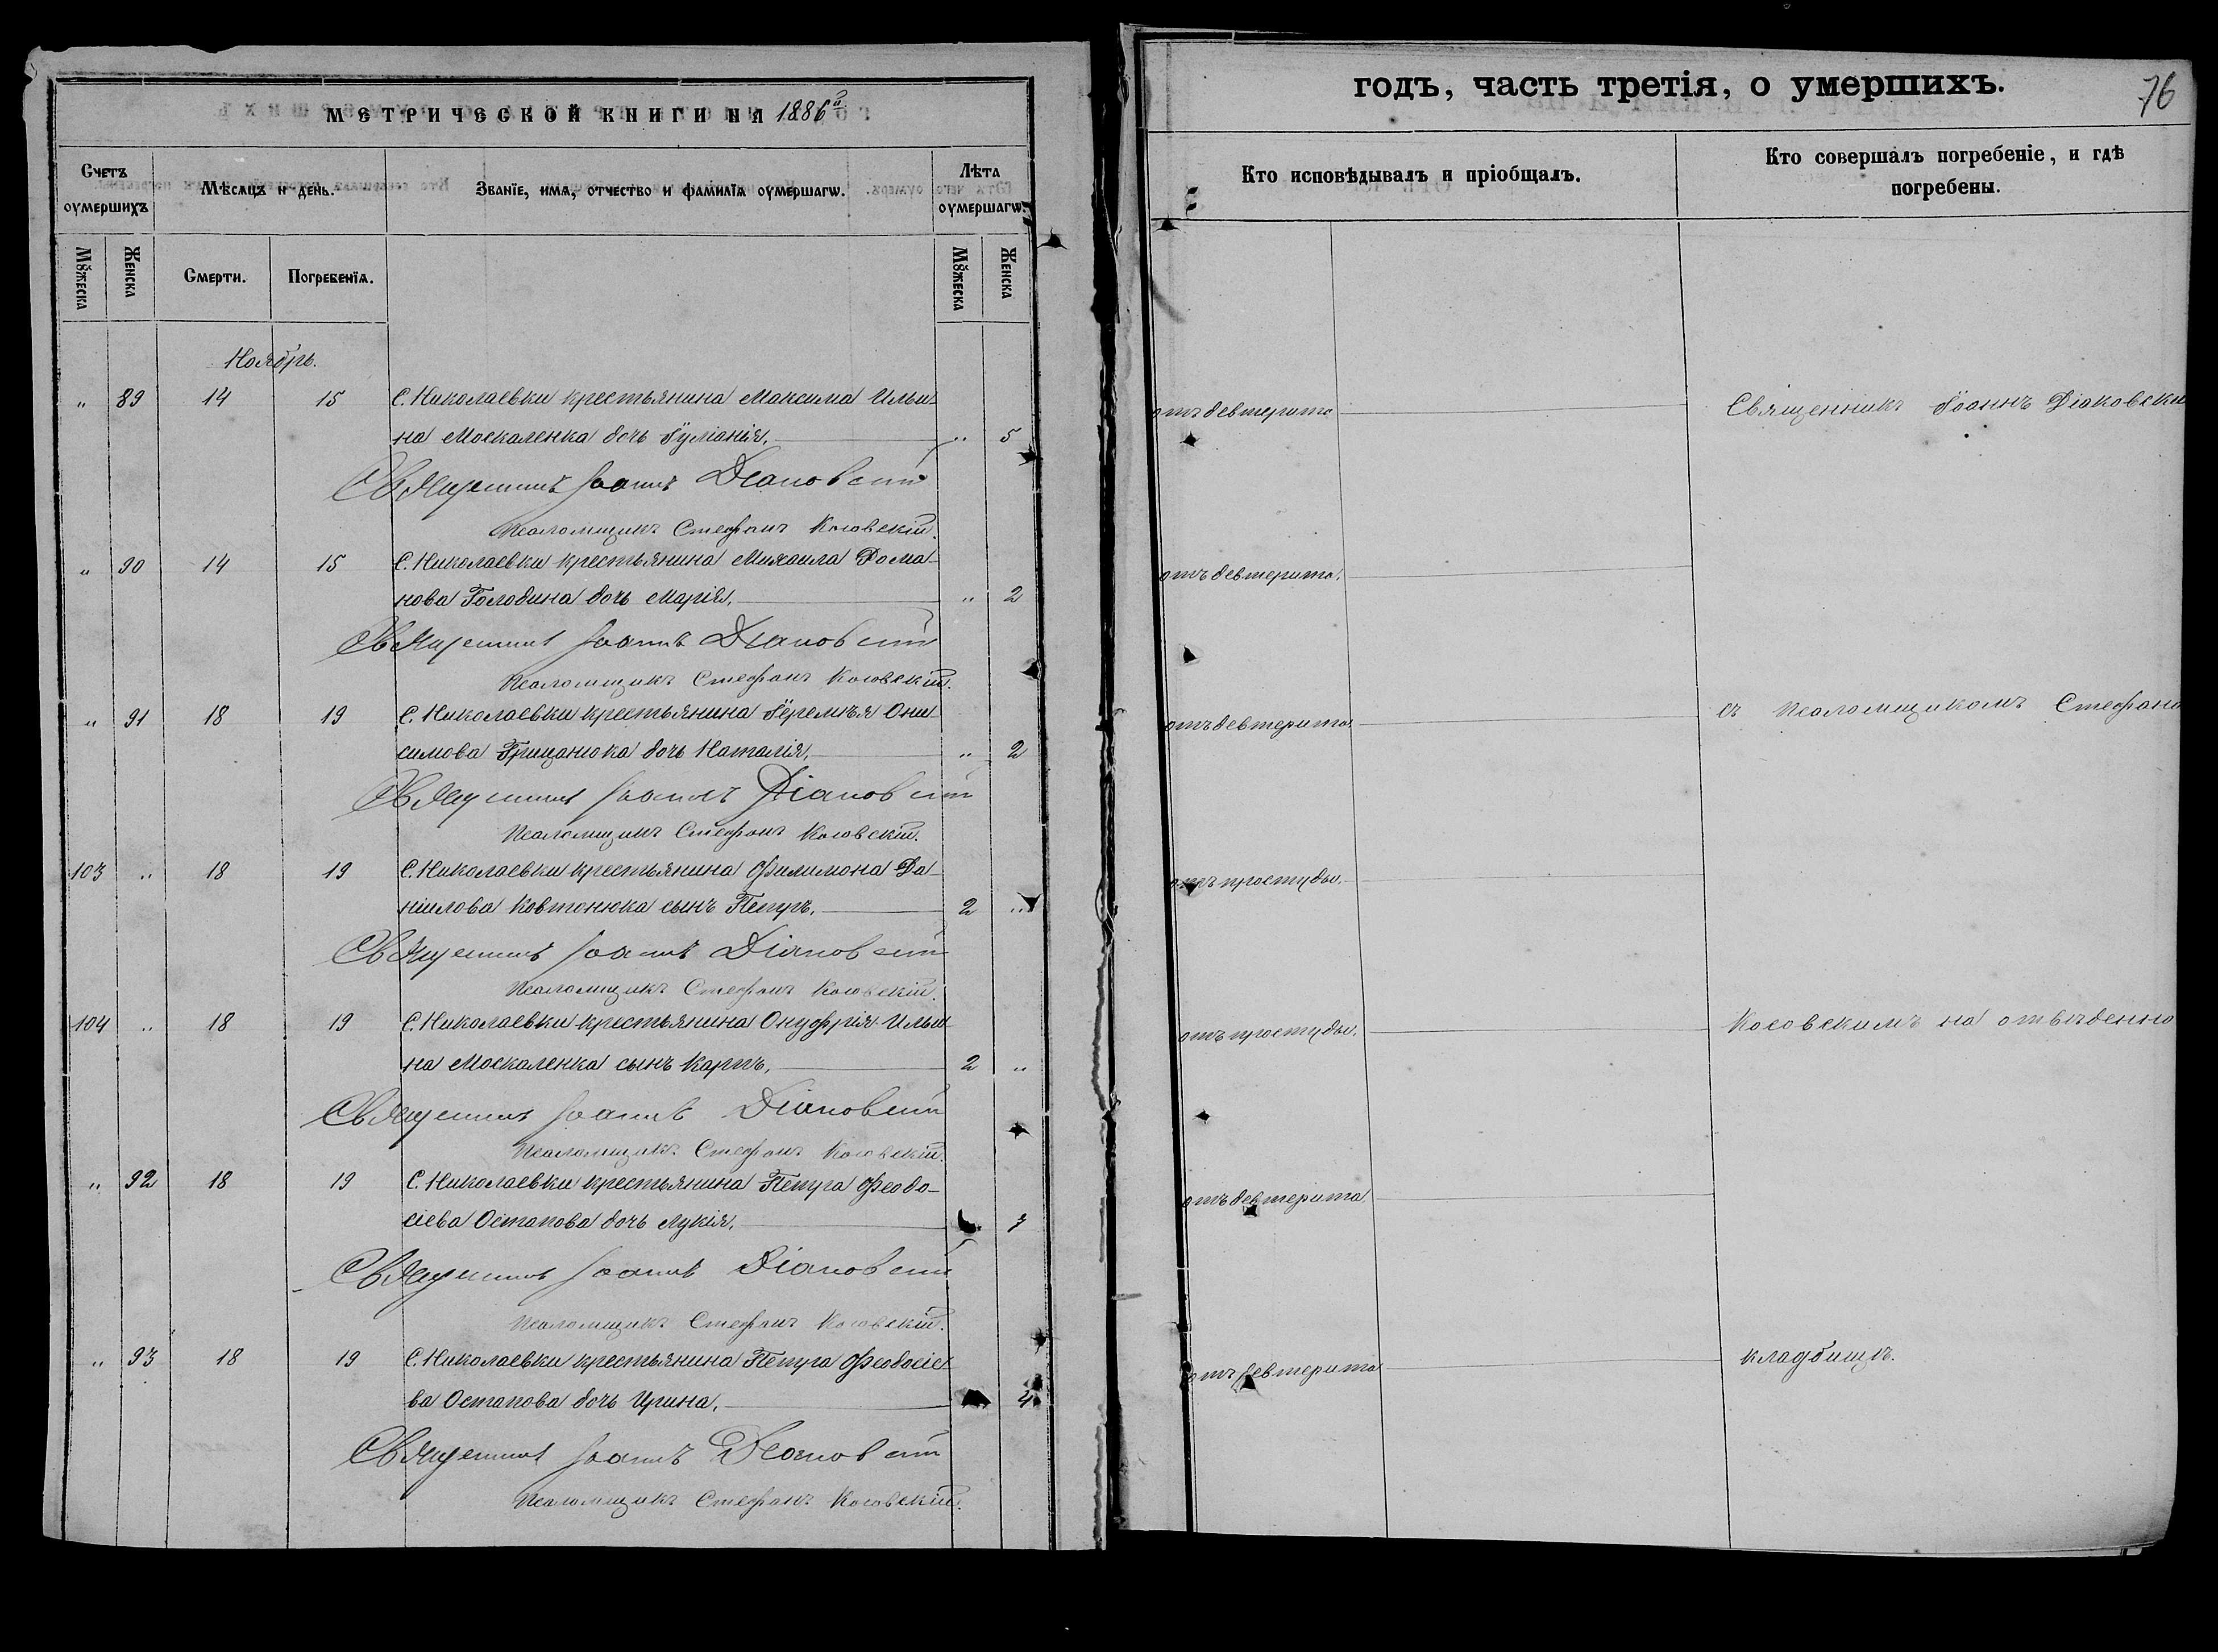 МЕТРИЧЕСКОЙ КНИГИ НА 1886й
годъ, часть третія, о умершихъ.
76
Счетъ оумершихъ
Мѣсяцъ и день.
Званїе, имѧ, отчество и фамилїѧ оумершагѡ.
Лѣта оумершагѡ.
Кто исповѣдывалъ и пріобщалъ.
Кто совершалъ погребеніе, и гдѣ
погребены.
Мꙋжеска
Женска
Смерти.
Погребенїѧ.
Мꙋжеска
Женска
Ноябрь.
„ 89 14 15 С. Николаевки крестьянина Максима Ильи-
на Москаленка дочь Іуліанія. „ 5
отъ девтерита
Священникъ Іоаннъ Діаковскі
Священникъ Іоаннъ Діаковскій
Псаломщикъ Стефанъ Косовскій.
„ 90 14 15 С. Николаевки крестьянина Михаила Рома-
нова Голодина дочь Марія. „ 2
отъ девтерита.
Священникъ Іоаннъ Діаковскій
Псаломщикъ Стефанъ Косовскій.
„ 91 18 19 С. Николаевки крестьянина Іеремѣя Они-
симова Грицанюка дочь Наталія. „ 2
отъ девтерита
съ Псаломщикомъ Стефано
Священникъ Іоаннъ Діаковскій
Псаломщикъ Стефанъ Косовскій.
103 „ 18 19 С. Николаевки крестьянина Филимона Да-
ніилова Ковтонюка сынъ Петръ. 2 „
отъ простуды.
Священникъ Іоаннъ Діаковскій
Псаломщикъ Стефанъ Косовскій.
104 „ 18 19 С. Николаевки крестьянина Онуфрія Ильи-
на Москаленка сынъ Карпъ. 2 „
отъ простуды.
Косовскимъ на отвѣденно
Священникъ Іоаннъ Діаковскій
Псаломщикъ Стефанъ Косовскій.
„ 92 18 19 С. Николаевки крестьянина Петра Феодо-
сіева Остапова дочь Лукія. 7
отъ девтерита
Священникъ Іоаннъ Діаковскій
Псаломщикъ Стефанъ Косовскій.
„ 93 18 19 С. Николаевки крестьянина Петра Феодосіе-
ва Остапова дочь Ирина. 4
отъ девтерита
кладбищѣ.
Священникъ Іоаннъ Діаковскій
Псаломщикъ Стефанъ Косовскій.